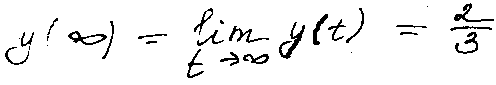 y(∞) = lim_{t→∞} y(t) = 2/3